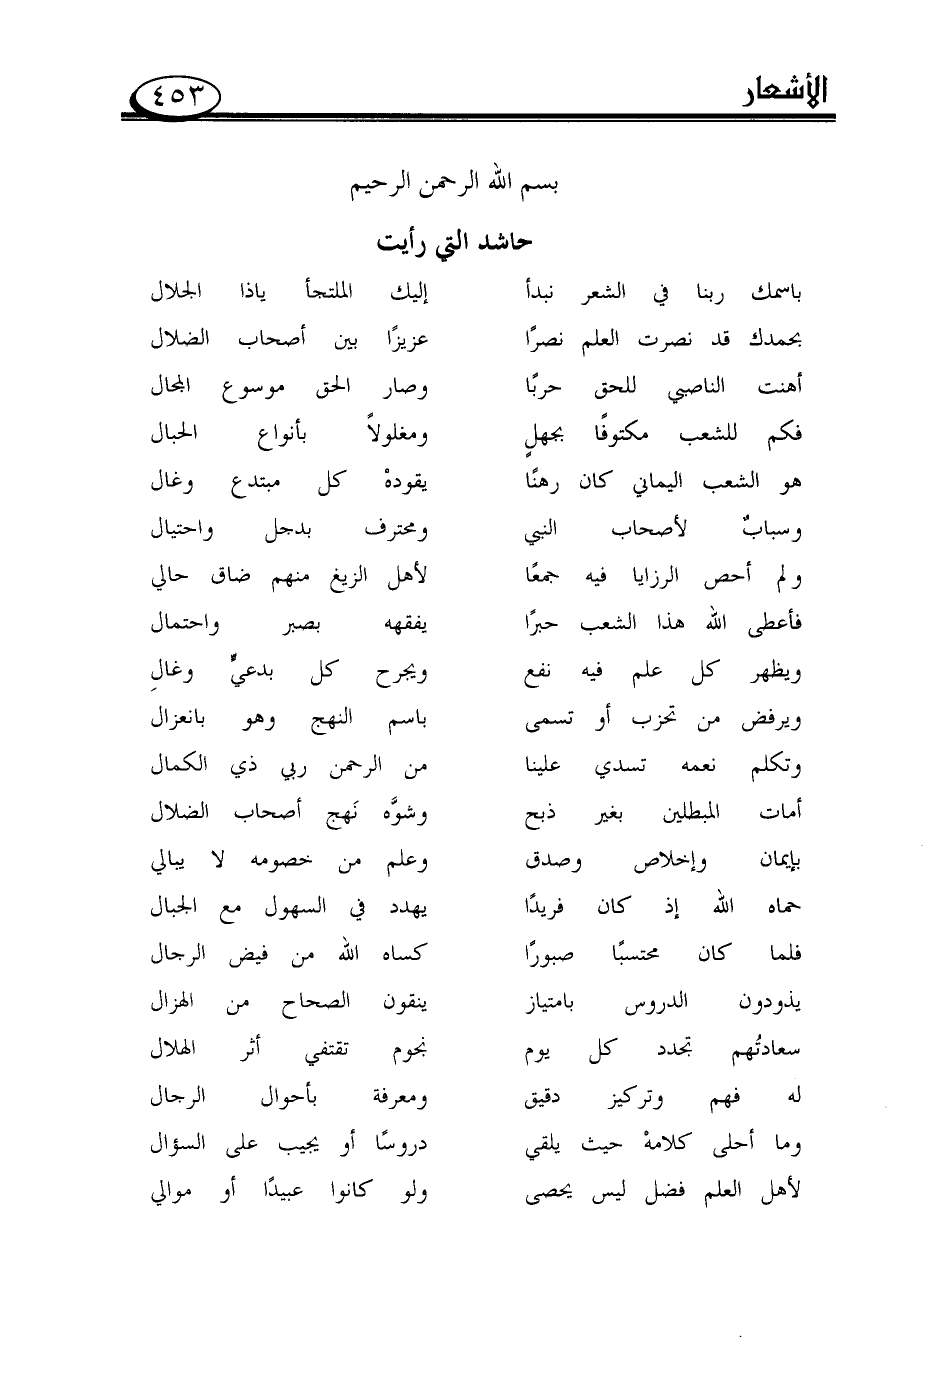 الأشعار ٤٥٣
بسم الله الرحمن الرحيم
حاشد التي رأيت
باسمك ربنا في الشعر نبدأ إليك الملتجأ ياذا الجلال
بحمدك قد نصرت العلم نصرًا عزيزًا بين أصحاب الضلال
أهنت الناصبي للحق حربًا وصار الحق موسوع المجال
فكم للشعب مكتوفًا بجهلٍ ومغلولاً بأنواع الحبال
هو الشعب اليماني كان رهنًا يقودهْ كل مبتدع وغال
وسبابٌ لأصحاب النبي ومحترف بدجل واحتيال
ولم أحص الرزايا فيه جمعًا لأهل الزيغ منهم ضاق حالي
فأعطى الله هذا الشعب حبرًا يفقهه بصبر واحتمال
ويظهر كل علم فيه نفع ويجرح كل بدعيٍّ وغالِ
ويرفض من تحزب أو تسمى باسم النهج وهو بانعزال
وتكلم نعمه تسدي علينا من الرحمن ربي ذي الكمال
أمات المبطلين بغير ذبح وشوَّه نَهج أصحاب الضلال
بإيمان وإخلاص وصدق وعلم من خصومه لا يبالي
حماه الله إذ كان فريدًا يهدد في السهول مع الجبال
فلما كان محتسبًا صبورًا كساه الله من فيض الرجال
يذودون الدروس بامتياز ينقون الصحاح من الهزال
سعادتُهم تجدد كل يوم نجوم تقتفي أثر الهلال
له فهم وتركيز دقيق ومعرفة بأحوال الرجال
وما أحلى كلامهْ حيث يلقي دروسًا أو يجيب على السؤال
لأهل العلم فضل ليس يحصى ولو كانوا عبيدًا أو موالي